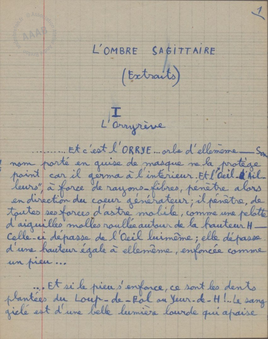 1
L'OMBRE SAGITTAIRE
(Extraits)
I
L'Orryrêve
... Et c'est l'ORRYE... orle d'ellemême — Son
nom porté en guise de masque ne la protège
point car il germa à l'intérieur. Et l'Oeil "Ail
leurs", à force de rayons-fibres, pénètre alors
en direction du coeur générateur; il pénètre, de
toutes ses forces d'astre mobile, comme une pelote
d'aiguilles molles roulée autour de la hauteur H —
Celle-ci dépasse de l'Oeil luimême; elle dépasse
d'une hauteur égale à ellemême, enfoncée comme
un pieu...
... Et si le pieu s'enforce, ce sont les dents
plantées du Loup-de-Rol au Yeur-de-H! Le sang
giclé est d'une belle lumière lourde qui apaise